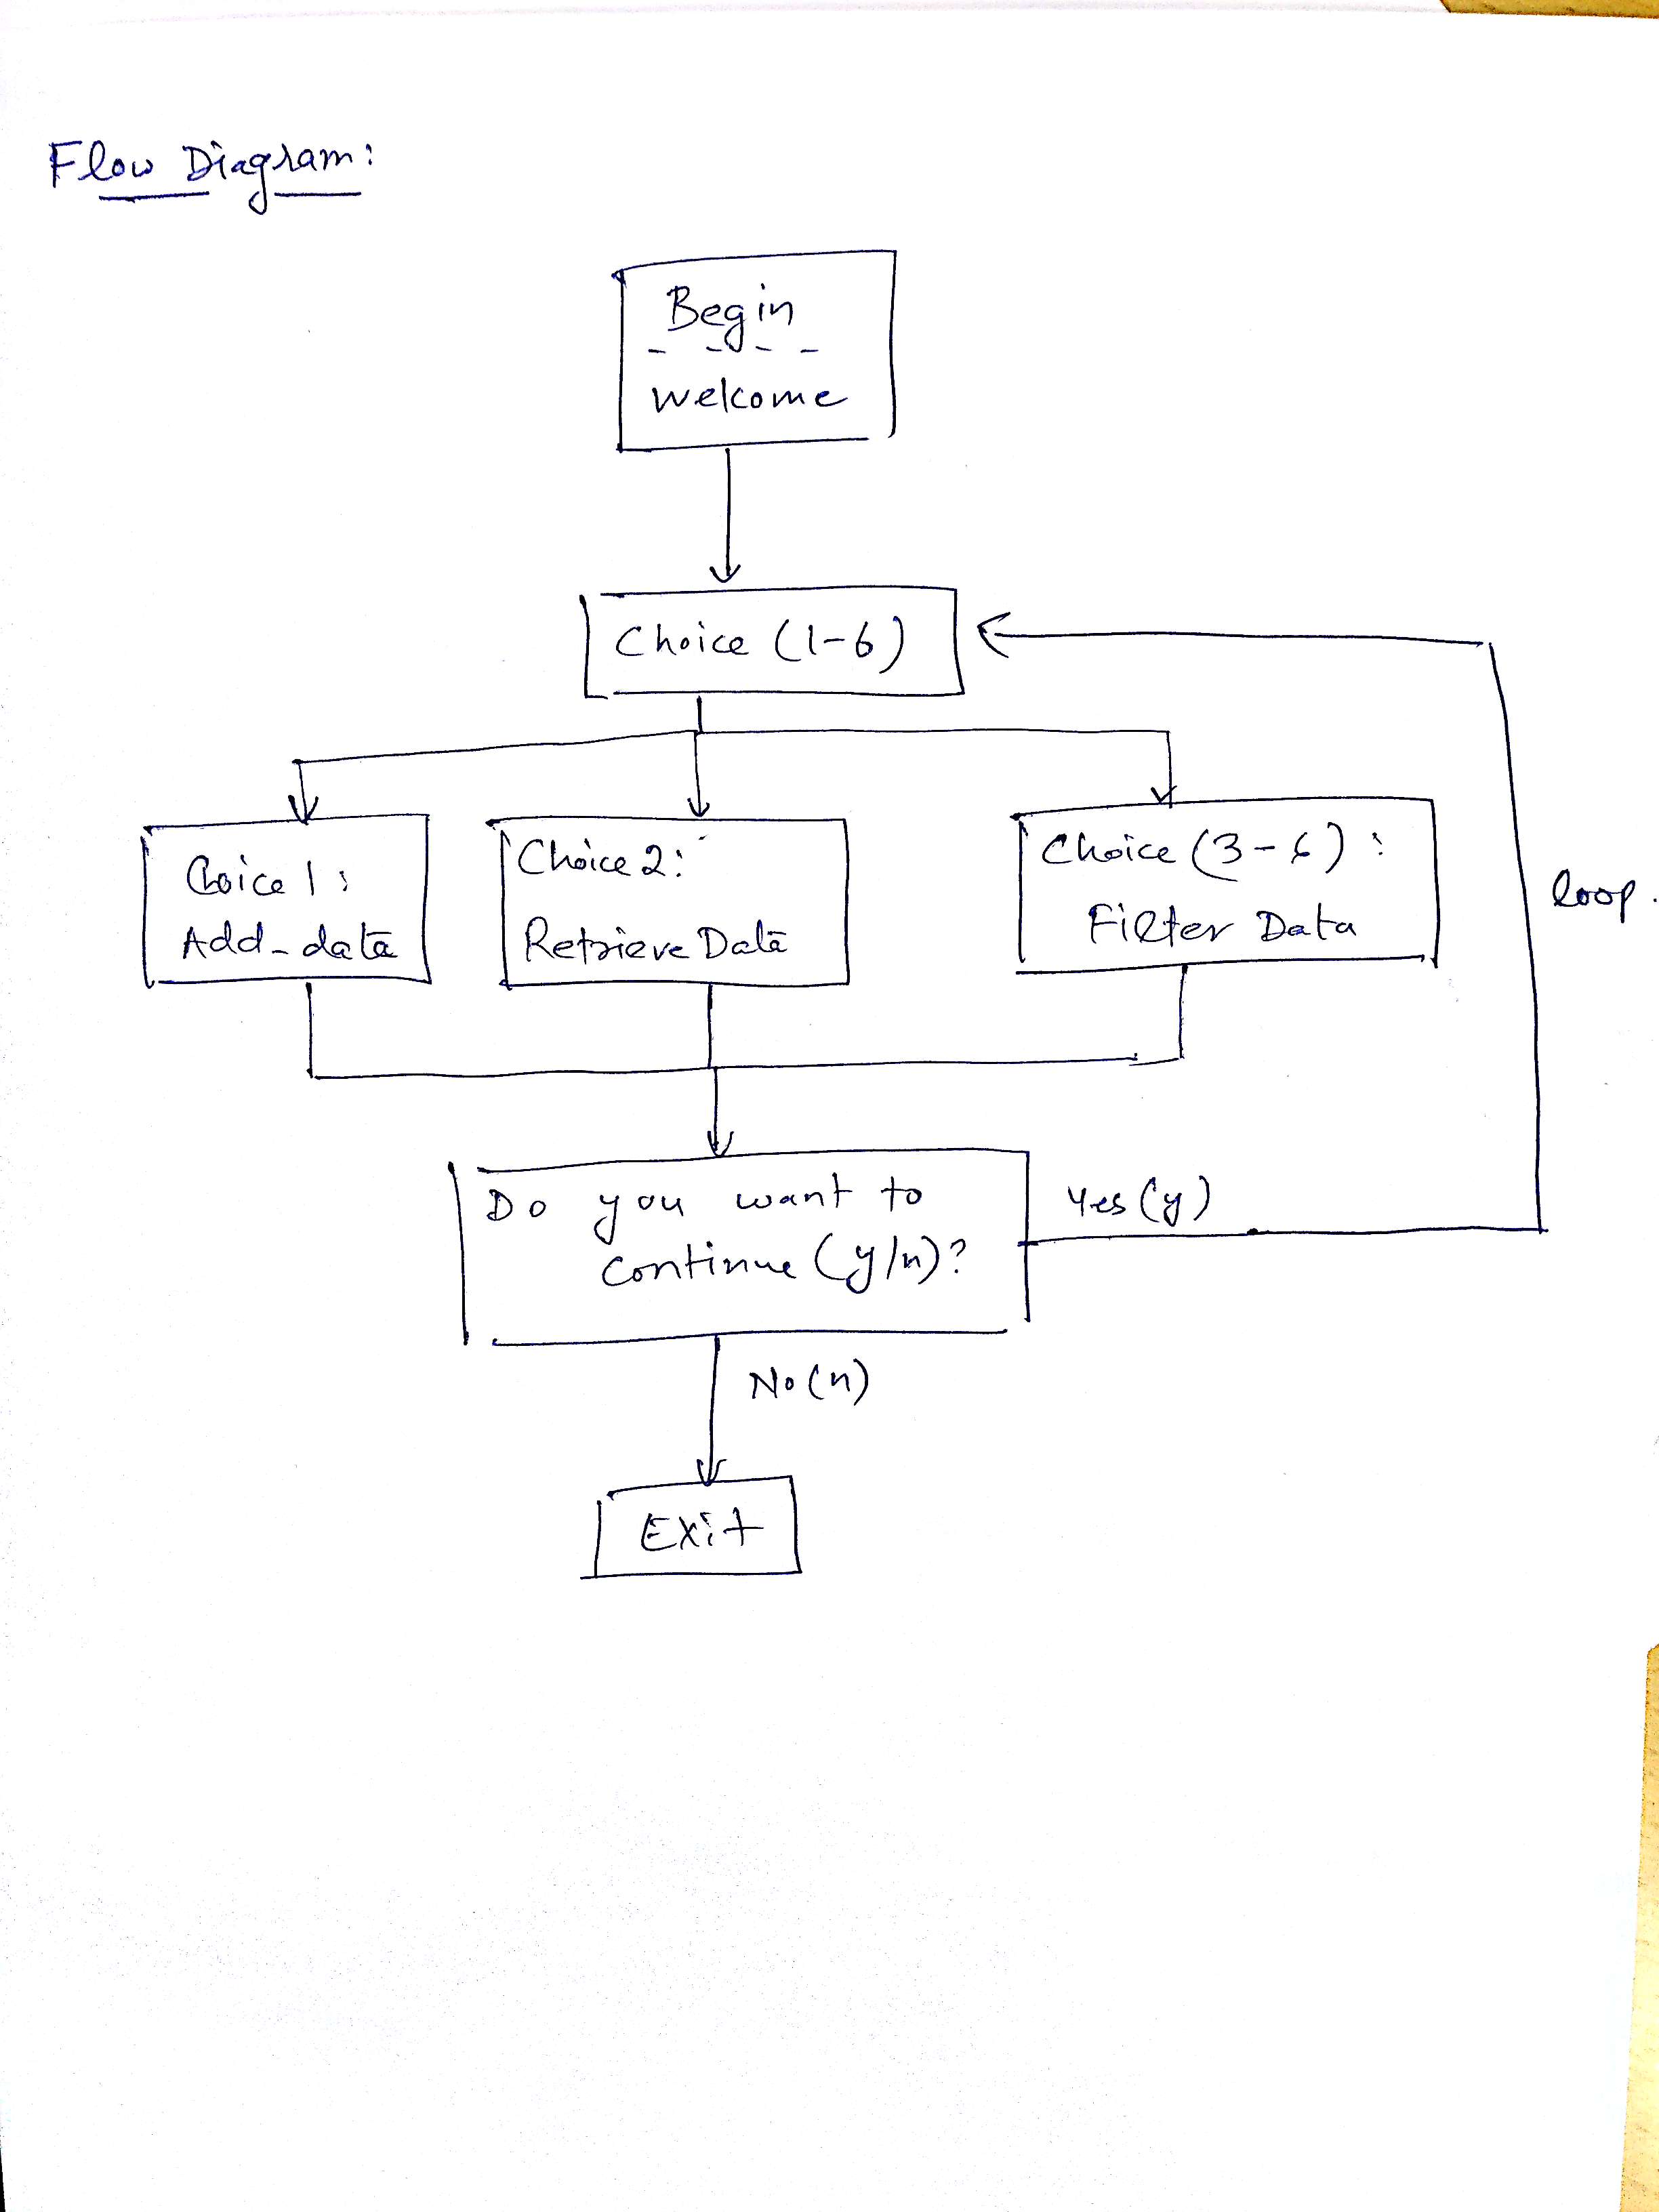 Flow Diagram:
Begin
Welcome
Choice (1-6)
Choice 1:
Add-data
Choice 2:
Retrieve Data
Choice (3-6):
Filter Data
loop.
Do you want to
continue (y/n)?
Yes (y)
No (n)
Exit